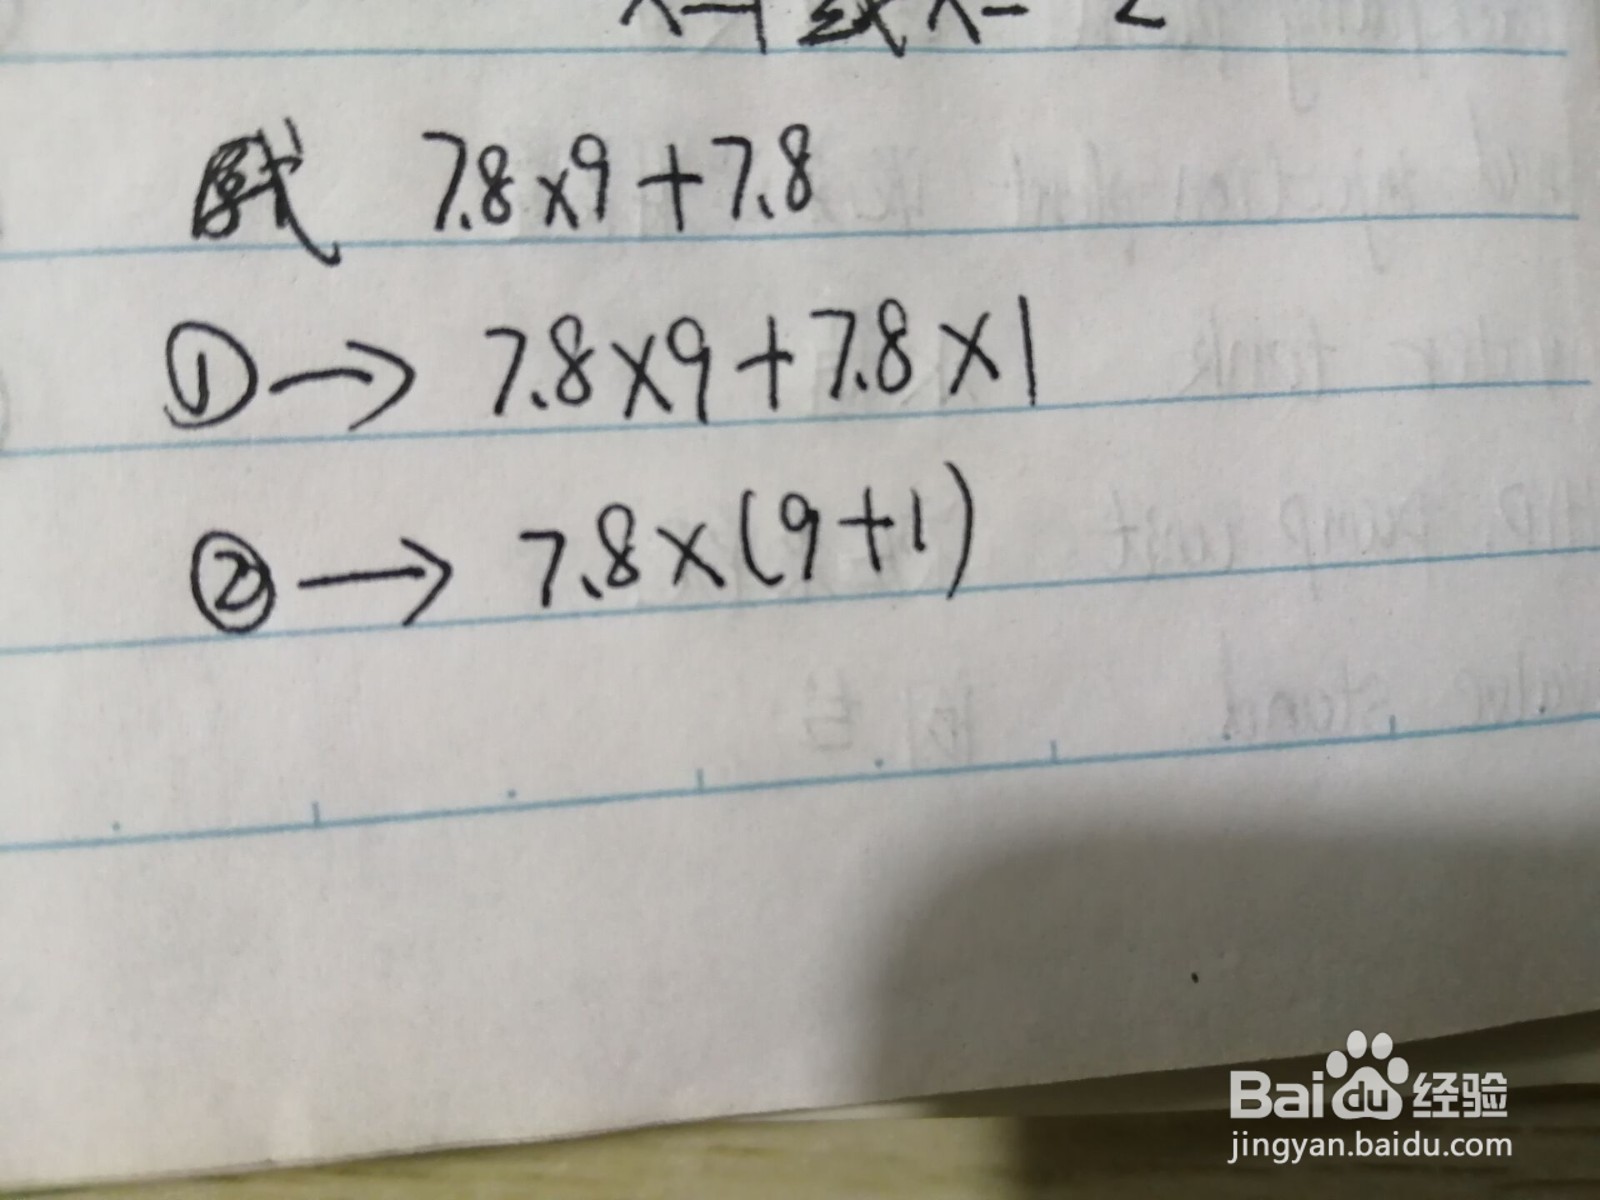 7.8×9+7.8
①→ 7.8×9+7.8×1
②→ 7.8×(9+1)
Bai du 经验
jingyan.baidu.com